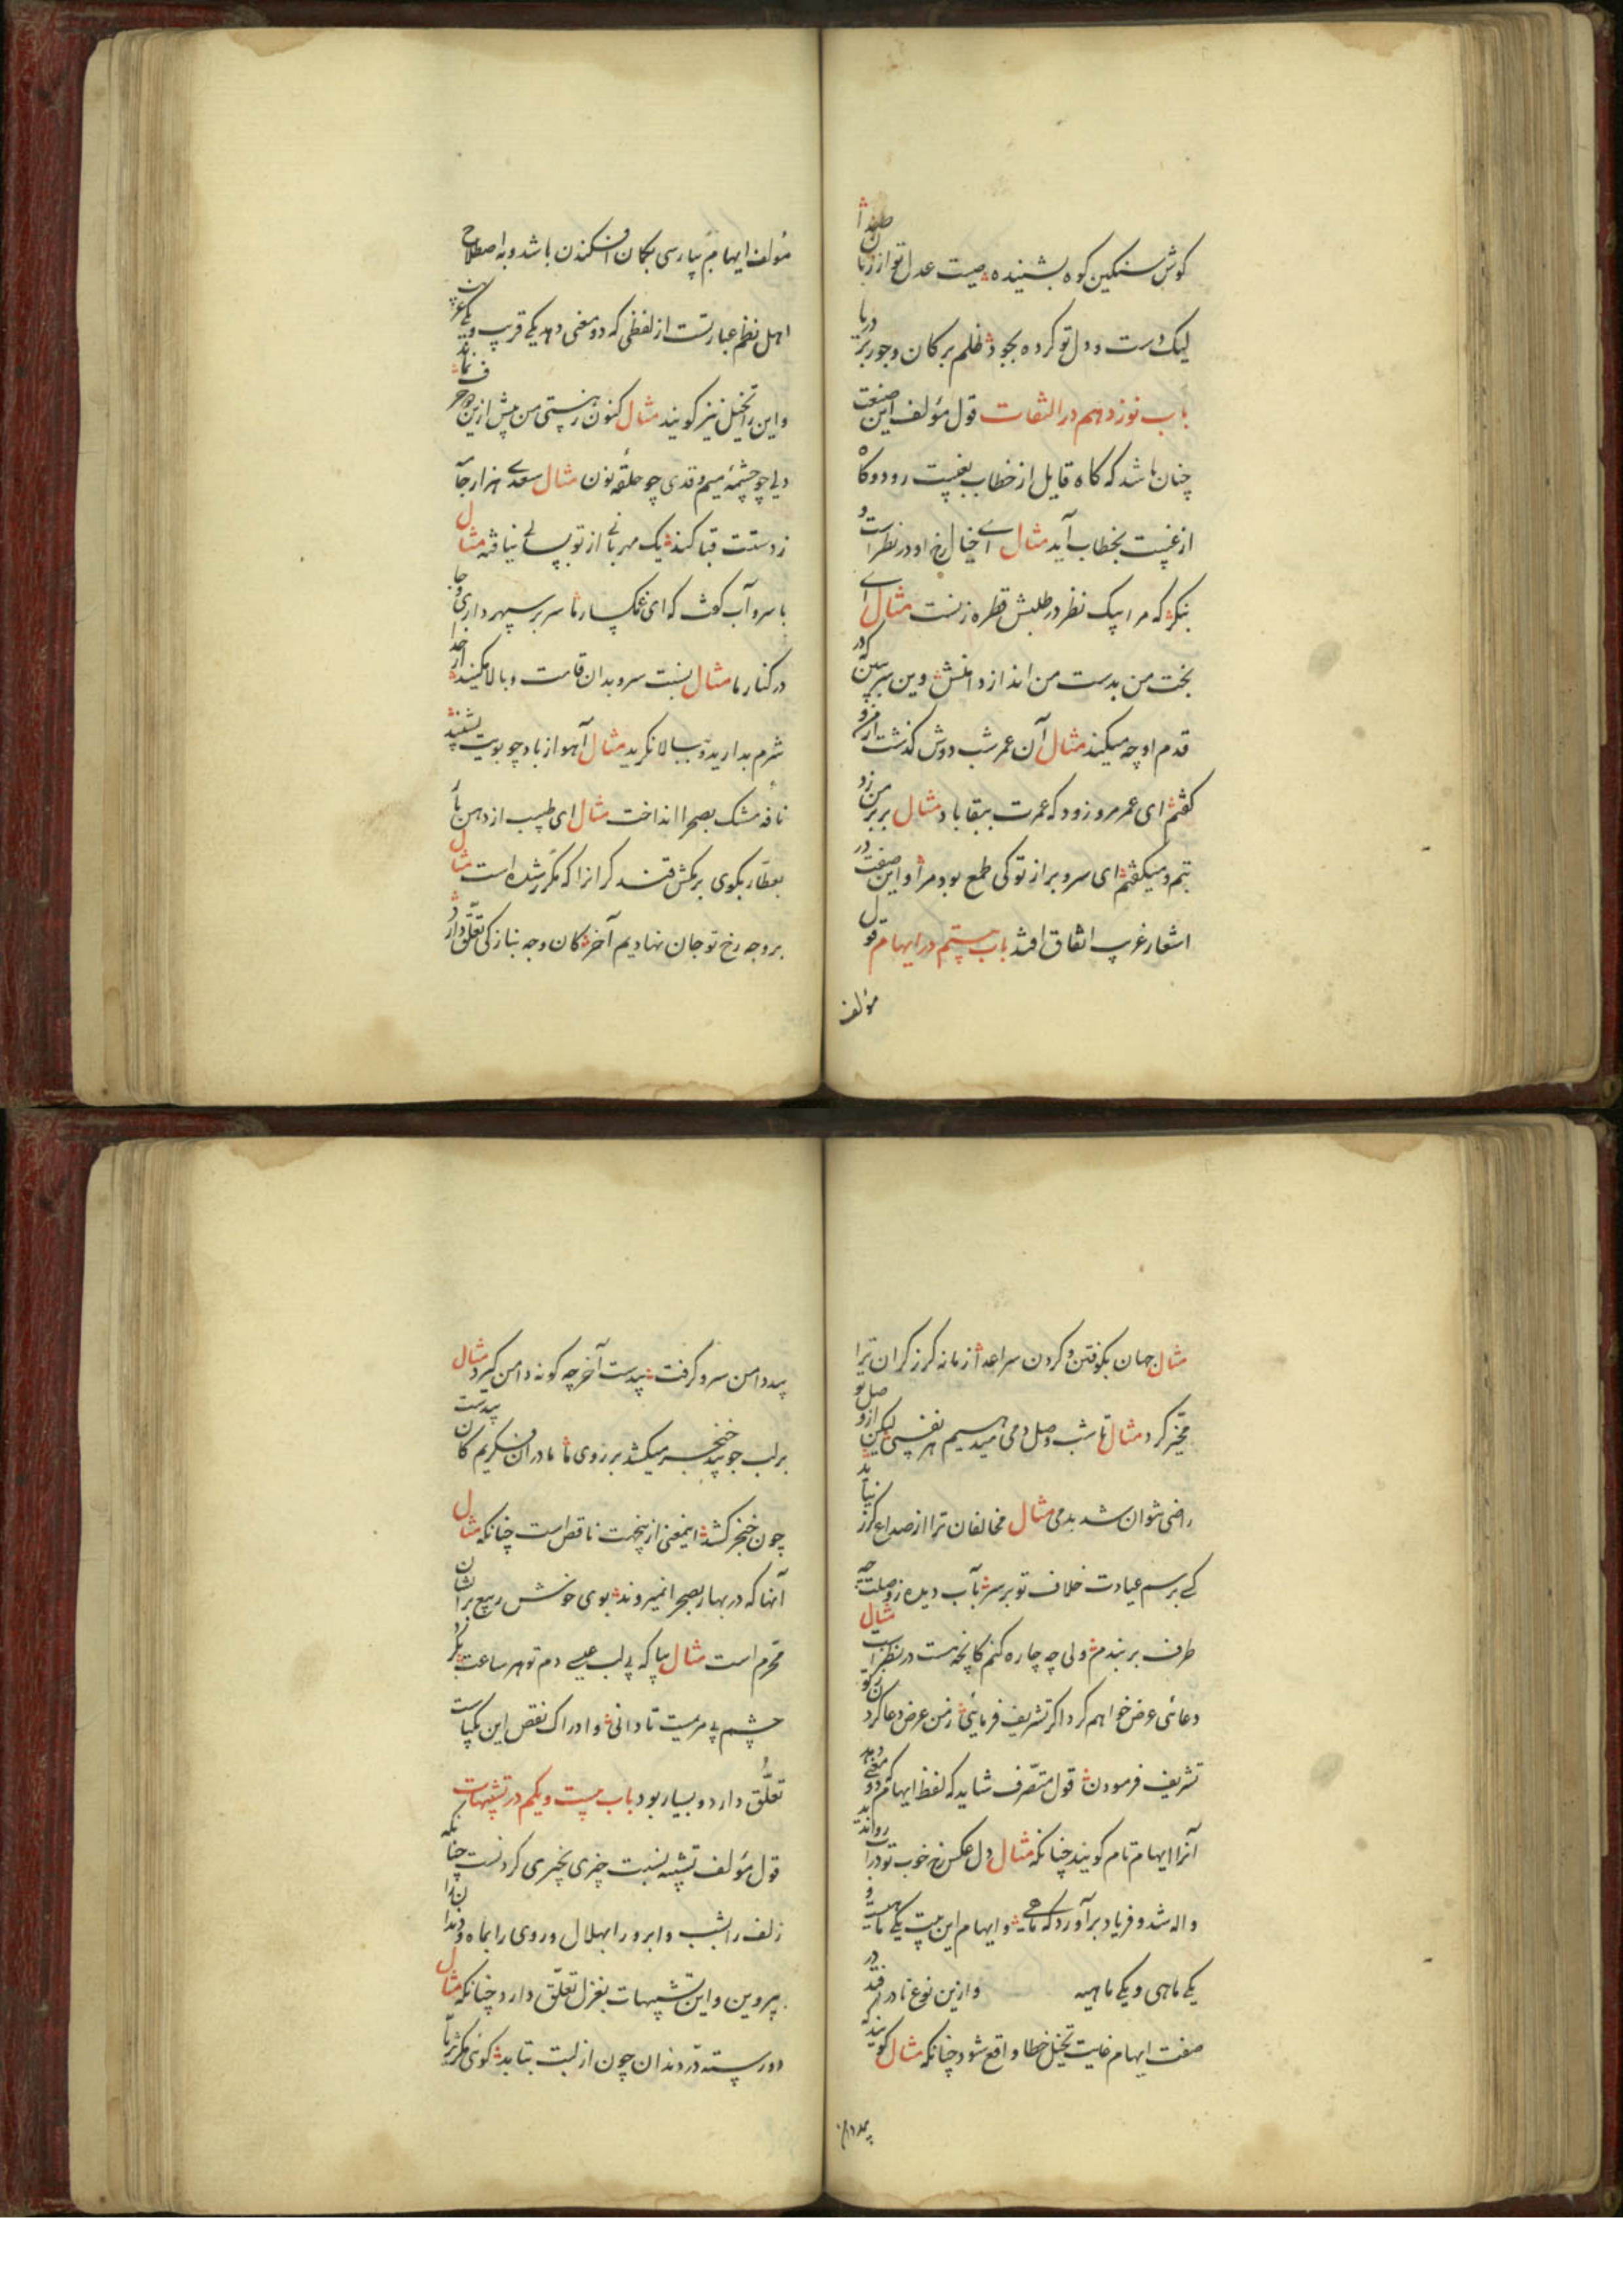 گوش سنگین کوه بشنیده صیت عدل تو از زبان صدا
لیک دست و دل تو کرده بجود ظلم بر کان و جور بر دریا
باب نوزدهم در التفات قول مؤلف این صنعت
چنان باشد که گاه قایل از خطاب بغیبت رود و گاه
از غیبت بخطاب آید مثال ای خیال رخ او در نظر است و
بنگر که مرا یک نظر در طلبش قطره زنست مثال ای
بخت من بدست من انداز دامنش وین سر ببین که در
قدم او چه میکند مثال آن عمر شب دوش گذشت از من و
گفتم ای عمر مرو زود که عمرت ببقا باد مثال بر بر من زد
و میگفتم ای سرو بر از تو کی طمع بود مرا و این صفت در
اشعار عرب اتفاق افتد باب بیستم در ایهام قول
مؤلف
مؤلف ایهام بپارسی بگمان افکندن باشد و به اصطلاح
اهل نظم عبارتست از لفظی که دو معنی دهد یکی قریب و یکی غریب
و این را تخییل نیز گویند مثال کنون ز هستی من پیش ازین دو حرف نماند
دلی چو چشمهٔ میم و قدی چو حلقهٔ نون مثال سعدی هزار جامه
ز دستت قبا کند یک مهربانی از تو بسالی نیافته مثال
با سرو آب گفت که ای غمگسار ما سر بر سپهر داری و جا
در کنار ما مثال نسبت سرو بدان قامت و بالا مکنید از خدا
شرم بدارید و ببالا نگرید مثال آهو از باد چو بویت بشنید
نافهٔ مشک بصحرا انداخت مثال ای طبیب از دهن یار
بعطار بگوی برمکش قند گران را که مکرر شده است مثال
بر وجه رخ تو جان نهادیم آخر کان وجه بنازکی تعلق دارد
مثال جهان بکوفتن گردن سر اعدا زمانه گرز گران ترا
مخیر کرد مثال تا شب وصل دمی میدهیم هر نفسی لیکن از وصل تو
راضی نتوان شد بدمی مثال مخالفان ترا از صداع گرز نیاید
کسی برسم عیادت خلاف تو بر سر بآب دیده ز وصلت چه
طرف بربندم ولی چه چاره کنم کانچه هست در نظر است مثال
دعائی عرض خواهم کرد اگر تشریف فرمائی ز من عرض دعا کردن ز تو
تشریف فرمودن قول متصرف شاید که لفظ ایهام دو معنی دهد
آنرا ایهام تام گویند چنانکه مثال دل عکس رخ خوب تو در آب روان دید
واله شد و فریاد برآورد که ماهی و ایهام این بیت یکی ماهیت و
یکی ماهی و یکی ما هیه و ازین نوع نادر افتد در
صفت ایهام غایت تخییل خطا واقع شود چنانکه مثال گویند که
بید دامن
بید دامن سرو گرفت بیدست آخر چه گونه دامن گیرد مثال
بر لب جو بید خنجر میکشد بر روی ما ما در آن فکریم کان بیدست
چون خنجر کشد اینمعنی ازینجهت ناقص است چنانکه مثال
آنها که در بهار بصحرا نمیروند بوی خوش ربیع برایشان
محرم است مثال بیا که بی لب عیسی دم تو هر ساعت بگرد
چشم پی مرمیت تا دانی و ادراک نقص این بکیاست
تعلق دارد و بسیار بود باب بیست و یکم در تشبیهات
قول مؤلف تشبیه نسبت چیزی بچیزی کردنست چنانکه
زلف را بشب و ابرو را بهلال و روی را بماه و دندان را
پروین و این تشبیهات بغزل تعلق دارد چنانکه مثال
دو رسته در دندان چون از لبت بتابد گوئی مگر ثریا